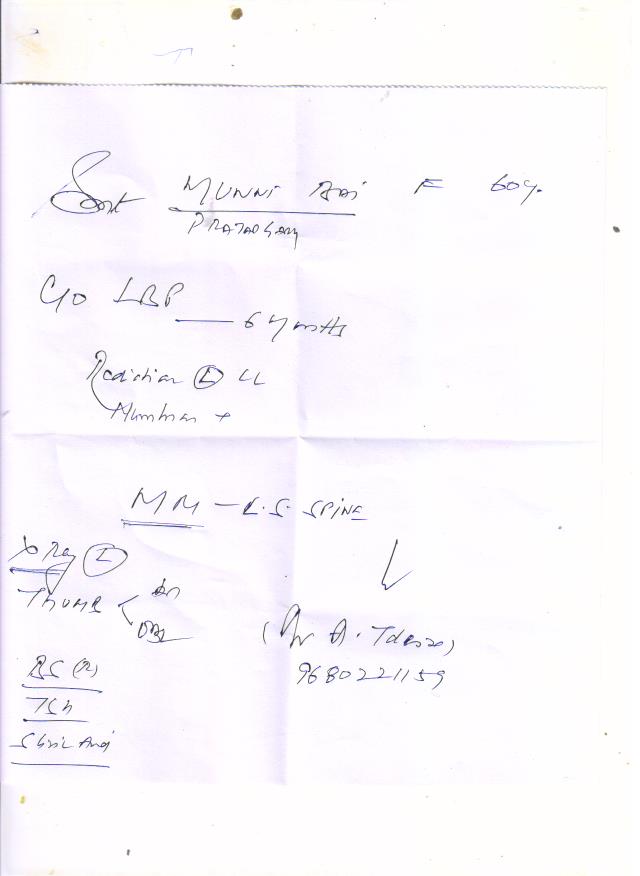 Smt MUNNI BAI F 60y.
PRATAPGARH
C/O LBP — 6 months
Radiation (L) LL
Numbness +
MRI - L.S. SPINE
X Ray (L)
THUMB < AP
OBL
BS (R)
TSH
S. Uric Acid
9680221159